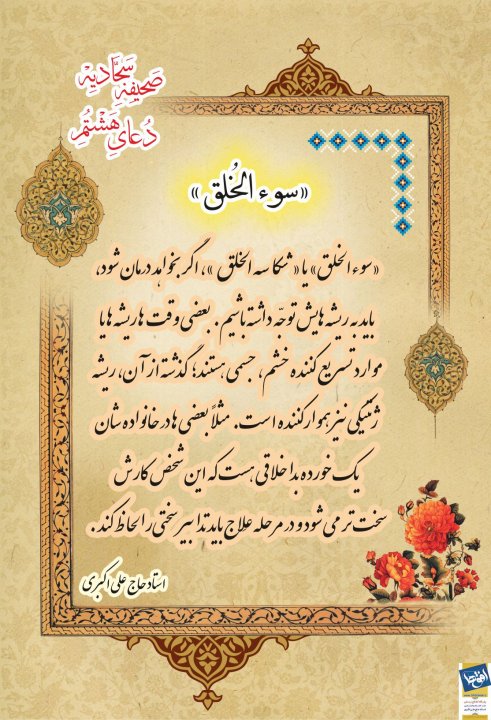 صَحیفِهٔ سَجّادیِهْ
دُعایِ هَشتُمْ
«سوء الخُلق»
«سوء الخلق» یا «شکاسه الخلق»، اگر بخواهد درمان شود،
باید به ریشه هایش توجّه داشته باشیم. بعضی وقت ها ریشه ها یا
موارد تسریع کننده خشم، جسمی هستند؛ گذشته از آن، ریشه
ژنتیکی نیز هموار کننده است. مثلاً بعضی ها در خانواده شان
یک خورده بداخلاقی هست که این شخص کارش
سخت تر می شود و در مرحله علاج باید تدابیر سختی را لحاظ کند.
استاد حاج علی اکبری